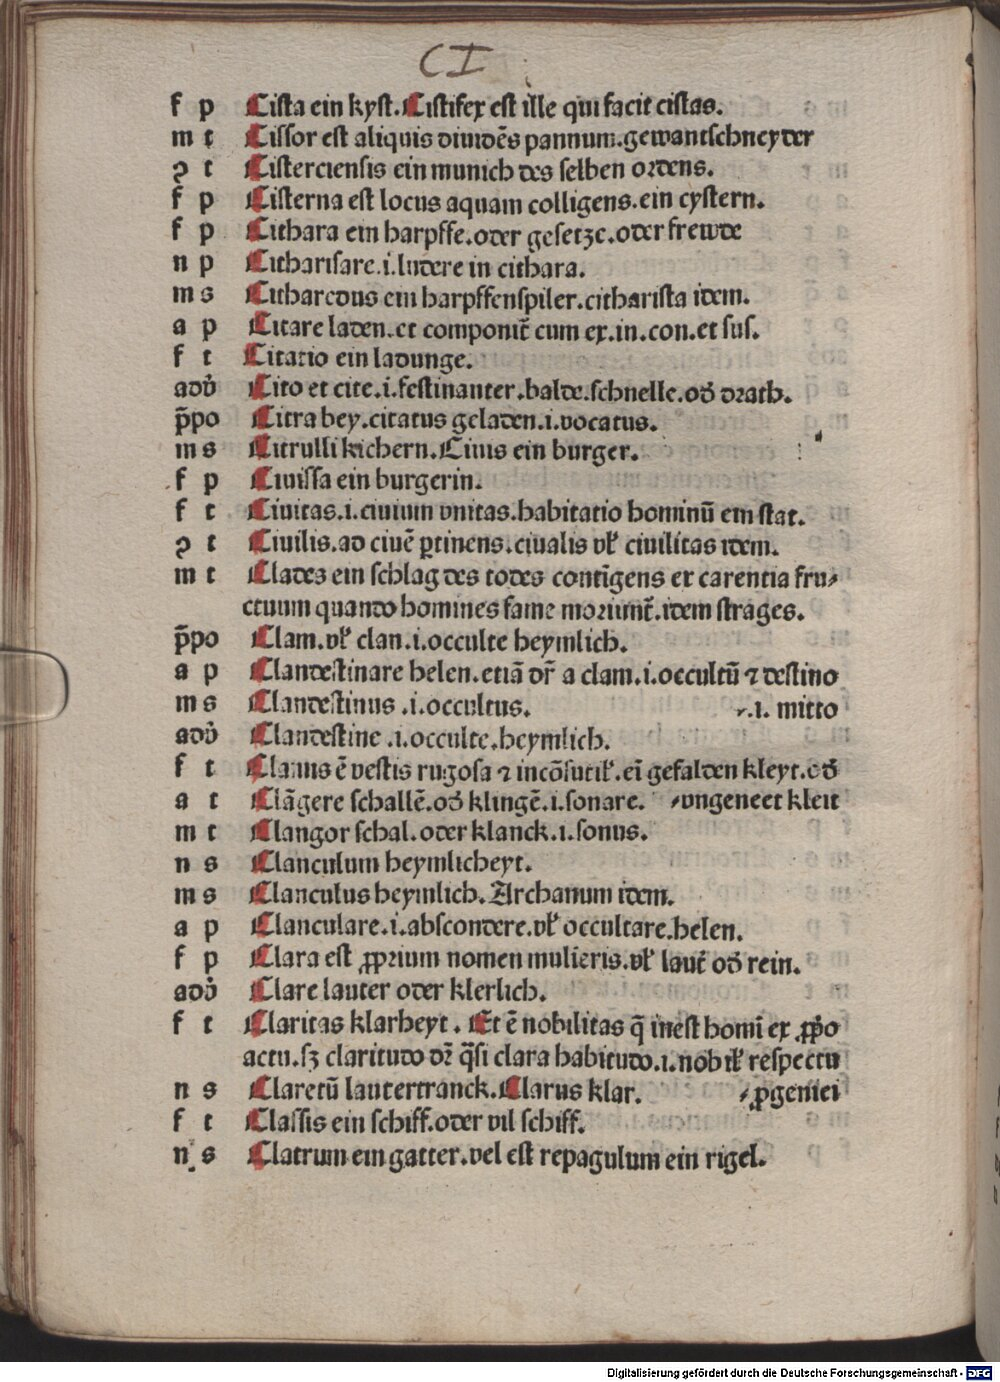 CI
f p Cista ein kyst. Cistifex est ille qui facit cistas.
m t Cissor est aliquis diuidēs pannum. gewantschneyder
ꝯ t Cisterciensis ein munich des selben ordens.
f p Cisterna est locus aquam colligens. ein cystern.
f p Cithara ein harpffe. oder gesetze. oder frewde
n p Citharisare .i. ludere in cithara.
m s Citharedus ein harpffenspiler. citharista idem.
a p Citare laden. et componit̄ cum ex. in. con. et sus.
f t Citatio ein ladunge.
adv̄ Cito et cite .i. festinanter. balde. schnelle. od̄ drath.
p̄po Citra bey. citatus geladen .i. vocatus.
m s Citrulli kichern. Ciuis ein burger.
f p Ciuissa ein burgerin.
f t Ciuitas .i. ciuium vnitas. habitatio hominū ein stat.
ꝯ t Ciuilis. ad ciuē ꝑtinens. ciualis vꝉ ciuilitas idem.
m t Clades ein schlag des todes contīgens ex carentia fru⸗
ctuum quando homines fame moriunt̄. idem strages.
p̄po Clam. vꝉ clan .i. occulte heymlich.
a p Clandestinare helen. etiā dr̄ a clam .i. occultū ⁊ destino
m s Clandestinus .i. occultus. ⸗.i. mitto
adv̄ Clandestine .i. occulte. heymlich.
f t Clamis ē vestis rugosa ⁊ incōsutiꝉ. eī gefalden kleyt. od̄
a t Clāgere schallē. od̄ klingē .i. sonare. ⸗vngeneet kleit
m t Clangor schal. oder klanck .i. sonus.
n s Clanculum heymlicheyt.
m s Clanculus heymlich. Archanum idem.
a p Clanculare .i. abscondere. vꝉ occultare. helen.
f p Clara est ꝓprium nomen mulieris. vꝉ laut̄ od̄ rein.
adv̄ Clare lauter oder klerlich.
f t Claritas klarheyt. Et ē nobilitas q̄ inest homī ex ꝓp̄o
actu. sꝫ claritudo dr̄ q̄si clara habitudo .i. nobiꝉ respectu
n s Claretū lautertranck. Clarus klar. ⸗ꝓgeniei
f t Classis ein schiff. oder vil schiff.
n s Clatrum ein gatter. vel est repagulum ein rigel.
Digitalisierung gefördert durch die Deutsche Forschungsgemeinschaft - DFG